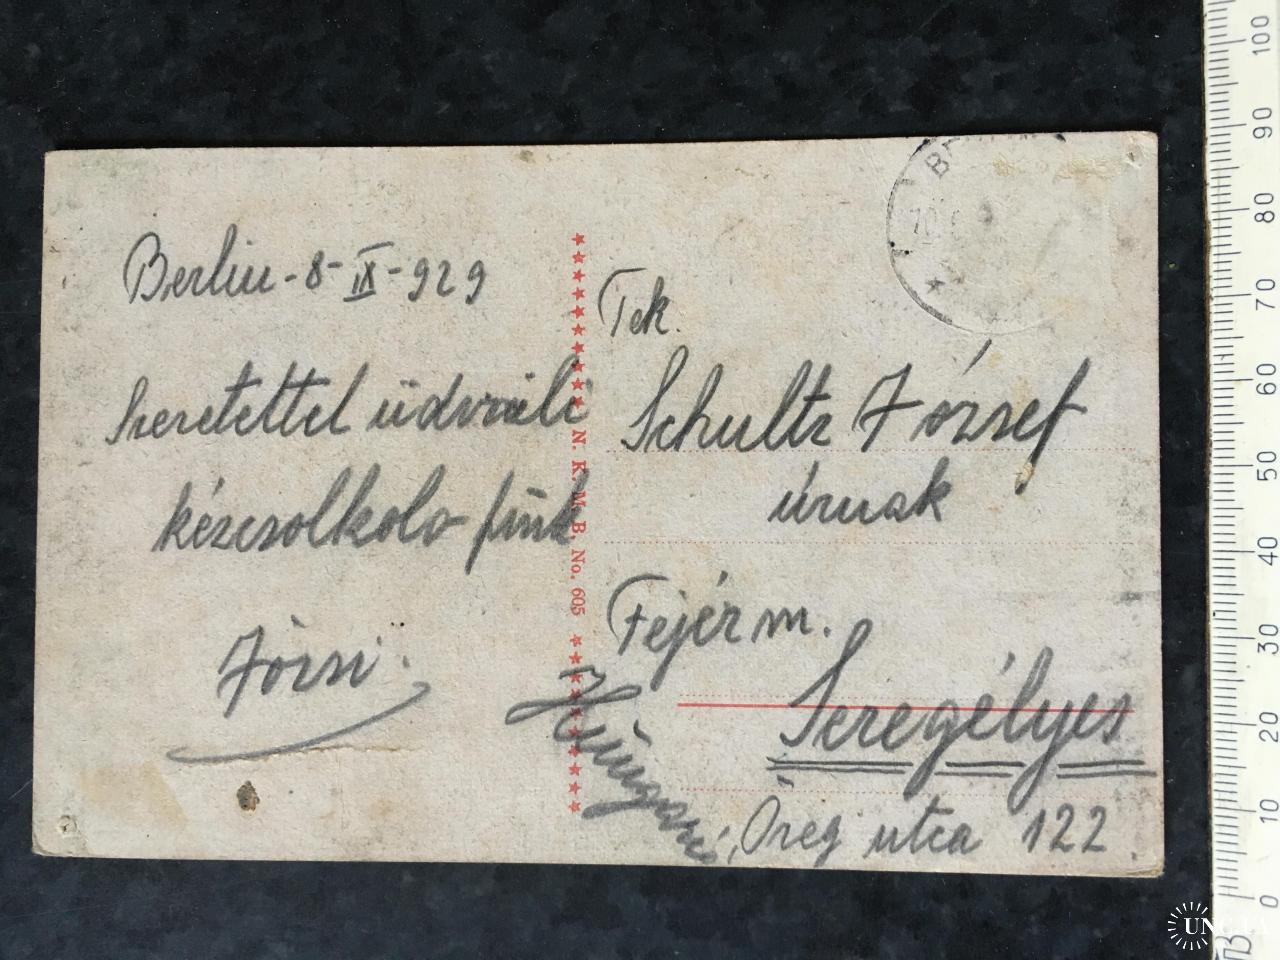 Berlin - 8 - IX - 929
Szeretettel üdvözli
kézcsolkolo fiuk
Józsi.
N. K. M. B. No. 605
Tek.
Schultz József
úrnak
Fejér m.
Seregélyes
Öreg utca 122.
B
100
90
80
70
60
50
40
30
20
10
0
UNC.UA